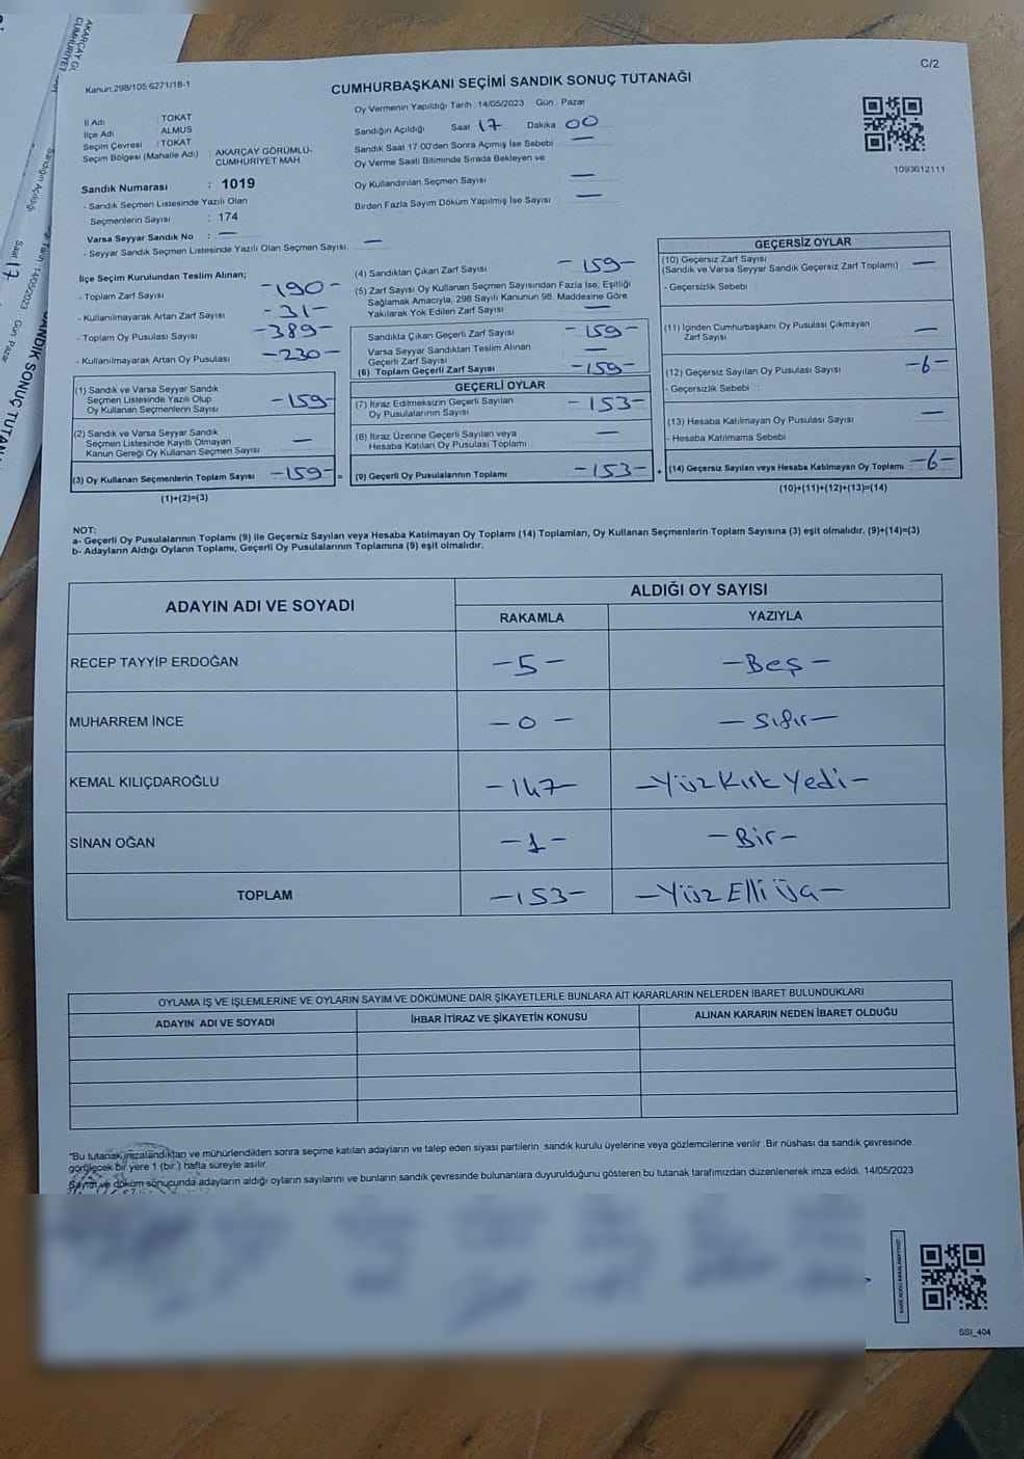 AKARÇAY GÖ
CUMHURİYET
Sandığın Açıldığı
Saat 17
Tarih : 14/05/2023 Gün : Pazar
SANDIK SONUÇ TUTANA
C/2
Kanun:298/105 6271/18-1
CUMHURBAŞKANI SEÇİMİ SANDIK SONUÇ TUTANAĞI
Oy Vermenin Yapıldığı Tarih : 14/05/2023 Gün : Pazar
İl Adı : TOKAT
İlçe Adı : ALMUS
Seçim Çevresi : TOKAT
Seçim Bölgesi (Mahalle Adı) : AKARÇAY GÖRÜMLÜ-
CUMHURİYET MAH
Sandığın Açıldığı Saat 17 Dakika 00
Sandık Saat 17.00'den Sonra Açılmış İse Sebebi —
Oy Verme Saati Bitiminde Sırada Bekleyen ve
Oy Kullandırılan Seçmen Sayısı —
Birden Fazla Sayım Döküm Yapılmış İse Sayısı —
1093612111
Sandık Numarası : 1019
- Sandık Seçmen Listesinde Yazılı Olan
Seçmenlerin Sayısı : 174
Varsa Seyyar Sandık No : —
- Seyyar Sandık Seçmen Listesinde Yazılı Olan Seçmen Sayısı: —
İlçe Seçim Kurulundan Teslim Alınan;
- Toplam Zarf Sayısı -190-
- Kullanılmayarak Artan Zarf Sayısı -31-
- Toplam Oy Pusulası Sayısı -389-
- Kullanılmayarak Artan Oy Pusulası -230-
(1) Sandık ve Varsa Seyyar Sandık
Seçmen Listesinde Yazılı Olup
Oy Kullanan Seçmenlerin Sayısı -159-
(2) Sandık ve Varsa Seyyar Sandık
Seçmen Listesinde Kayıtlı Olmayan
Kanun Gereği Oy Kullanan Seçmen Sayısı —
(3) Oy Kullanan Seçmenlerin Toplam Sayısı -159- =
(1)+(2)=(3)
(4) Sandıktan Çıkan Zarf Sayısı -159-
(5) Zarf Sayısı Oy Kullanan Seçmen Sayısından Fazla İse, Eşitliği
Sağlamak Amacıyla, 298 Sayılı Kanunun 98. Maddesine Göre
Yakılarak Yok Edilen Zarf Sayısı —
Sandıkta Çıkan Geçerli Zarf Sayısı -159-
Varsa Seyyar Sandıktan Teslim Alınan
Geçerli Zarf Sayısı —
(6) Toplam Geçerli Zarf Sayısı -159-
GEÇERLİ OYLAR
(7) İtiraz Edilmeksizin Geçerli Sayılan
Oy Pusulalarının Sayısı -153-
(8) İtiraz Üzerine Geçerli Sayılan veya
Hesaba Katılan Oy Pusulası Toplamı —
(9) Geçerli Oy Pusulalarının Toplamı -153- +
GEÇERSİZ OYLAR
(10) Geçersiz Zarf Sayısı
(Sandık ve Varsa Seyyar Sandık Geçersiz Zarf Toplamı) —
- Geçersizlik Sebebi
(11) İçinden Cumhurbaşkanı Oy Pusulası Çıkmayan
Zarf Sayısı —
(12) Geçersiz Sayılan Oy Pusulası Sayısı -6-
- Geçersizlik Sebebi :
(13) Hesaba Katılmayan Oy Pusulası Sayısı —
- Hesaba Katılmama Sebebi
(14) Geçersiz Sayılan veya Hesaba Katılmayan Oy Toplamı -6-
(10)+(11)+(12)+(13)=(14)
NOT:
a- Geçerli Oy Pusulalarının Toplamı (9) ile Geçersiz Sayılan veya Hesaba Katılmayan Oy Toplamı (14) Toplamları, Oy Kullanan Seçmenlerin Toplam Sayısına (3) eşit olmalıdır. (9)+(14)=(3)
b- Adayların Aldığı Oyların Toplamı, Geçerli Oy Pusulalarının Toplamına (9) eşit olmalıdır.
ADAYIN ADI VE SOYADI
ALDIĞI OY SAYISI
RAKAMLA YAZIYLA
RECEP TAYYİP ERDOĞAN -5- -Beş-
MUHARREM İNCE -0- -Sıfır-
KEMAL KILIÇDAROĞLU -147- -Yüz Kırk Yedi-
SİNAN OĞAN -1- -Bir-
TOPLAM -153- -Yüz Elli Üç-
OYLAMA İŞ VE İŞLEMLERİNE VE OYLARIN SAYIM VE DÖKÜMÜNE DAİR ŞİKAYETLERLE BUNLARA AİT KARARLARIN NELERDEN İBARET BULUNDUKLARI
ADAYIN ADI VE SOYADI İHBAR İTİRAZ VE ŞİKAYETİN KONUSU ALINAN KARARIN NEDEN İBARET OLDUĞU
*Bu tutanak imzalandıktan ve mühürlendikten sonra seçime katılan adayların ve talep eden siyasi partilerin sandık kurulu üyelerine veya gözlemcilerine verilir. Bir nüshası da sandık çevresinde
görülecek bir yere 1 (bir) hafta süreyle asılır.
Sayım ve döküm sonucunda adayların aldığı oyların sayılarını ve bunların sandık çevresinde bulunanlara duyurulduğunu gösteren bu tutanak tarafımızdan düzenlenerek imza edildi. 14/05/2023
SSI_404